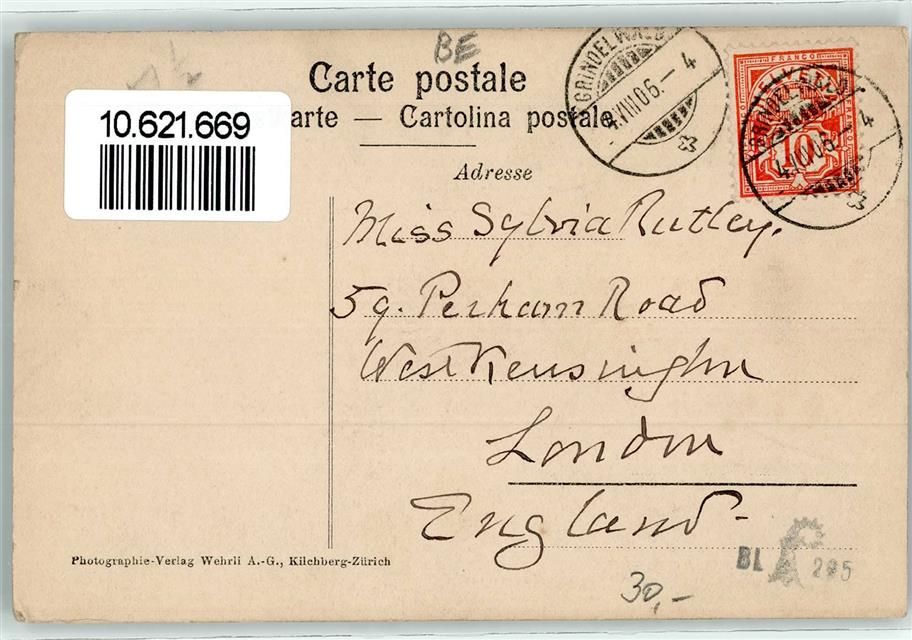 BE
Carte postale
10.621.669
arte — Cartolina postale
Adresse
GRINDELWALD
4.VIII.06.-4
FRANCO
HELVETIA
10
GRINDELWALD
4.VIII.06.-4
Miss Sylvia Rutley.
59. Perham Road
West Kensington
London
England-
Photographie-Verlag Wehrli A.-G., Kilchberg-Zürich
BL 295
30,-